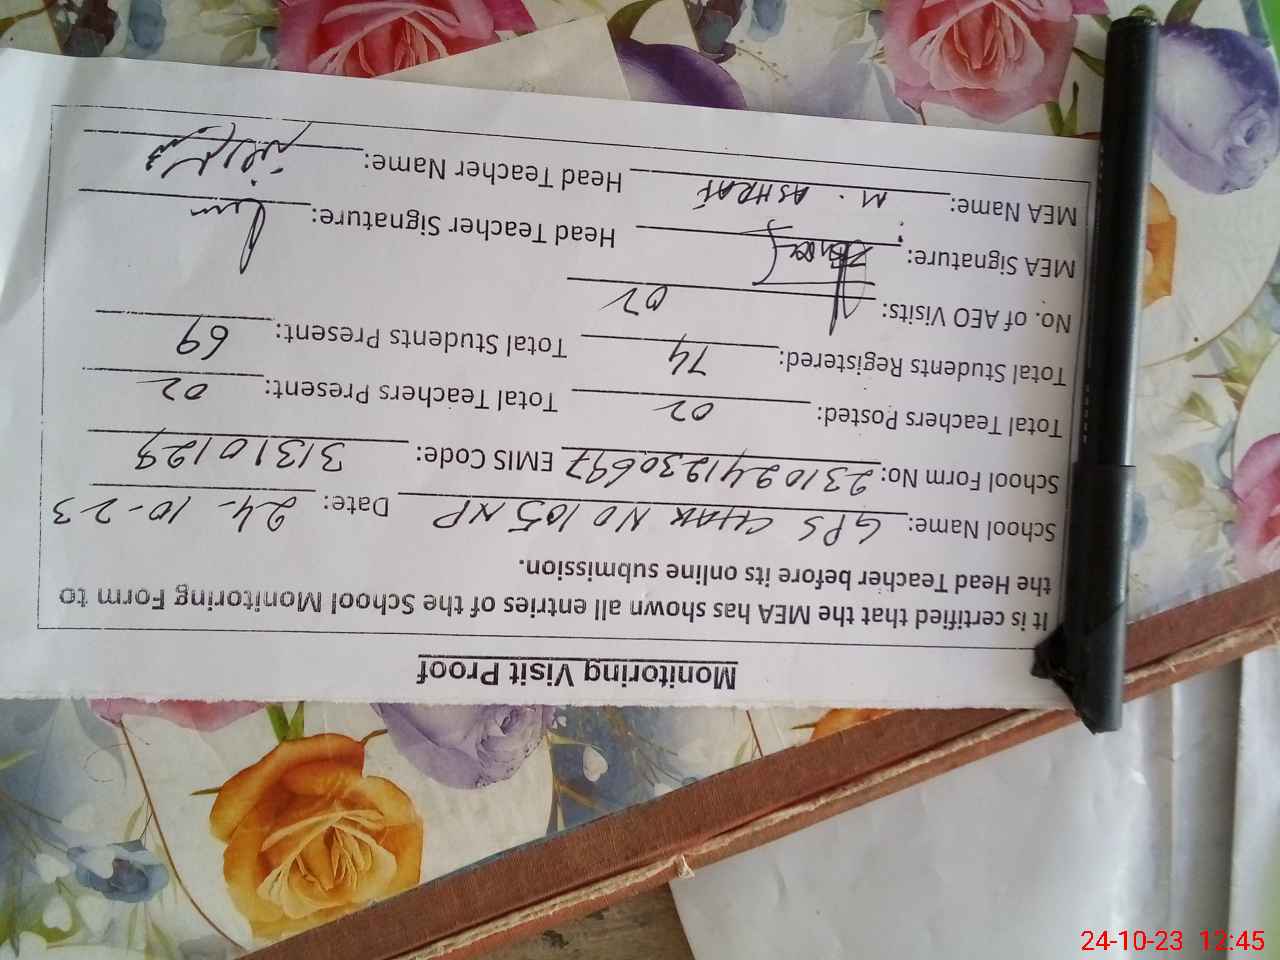 Monitoring Visit Proof
It is certified that the MEA has shown all entries of the School Monitoring Form to
the Head Teacher before its online submission.
School Name: GPS CHAK NO 105 NP Date: 24-10-23
School Form No: 2310241230697 EMIS Code: 31310129
Total Teachers Posted: 02 Total Teachers Present: 02
Total Students Registered: 74 Total Students Present: 69
No. of AEO Visits: 02
MEA Signature: Head Teacher Signature:
MEA Name: M. ASHRAF Head Teacher Name:
24-10-23 12:45